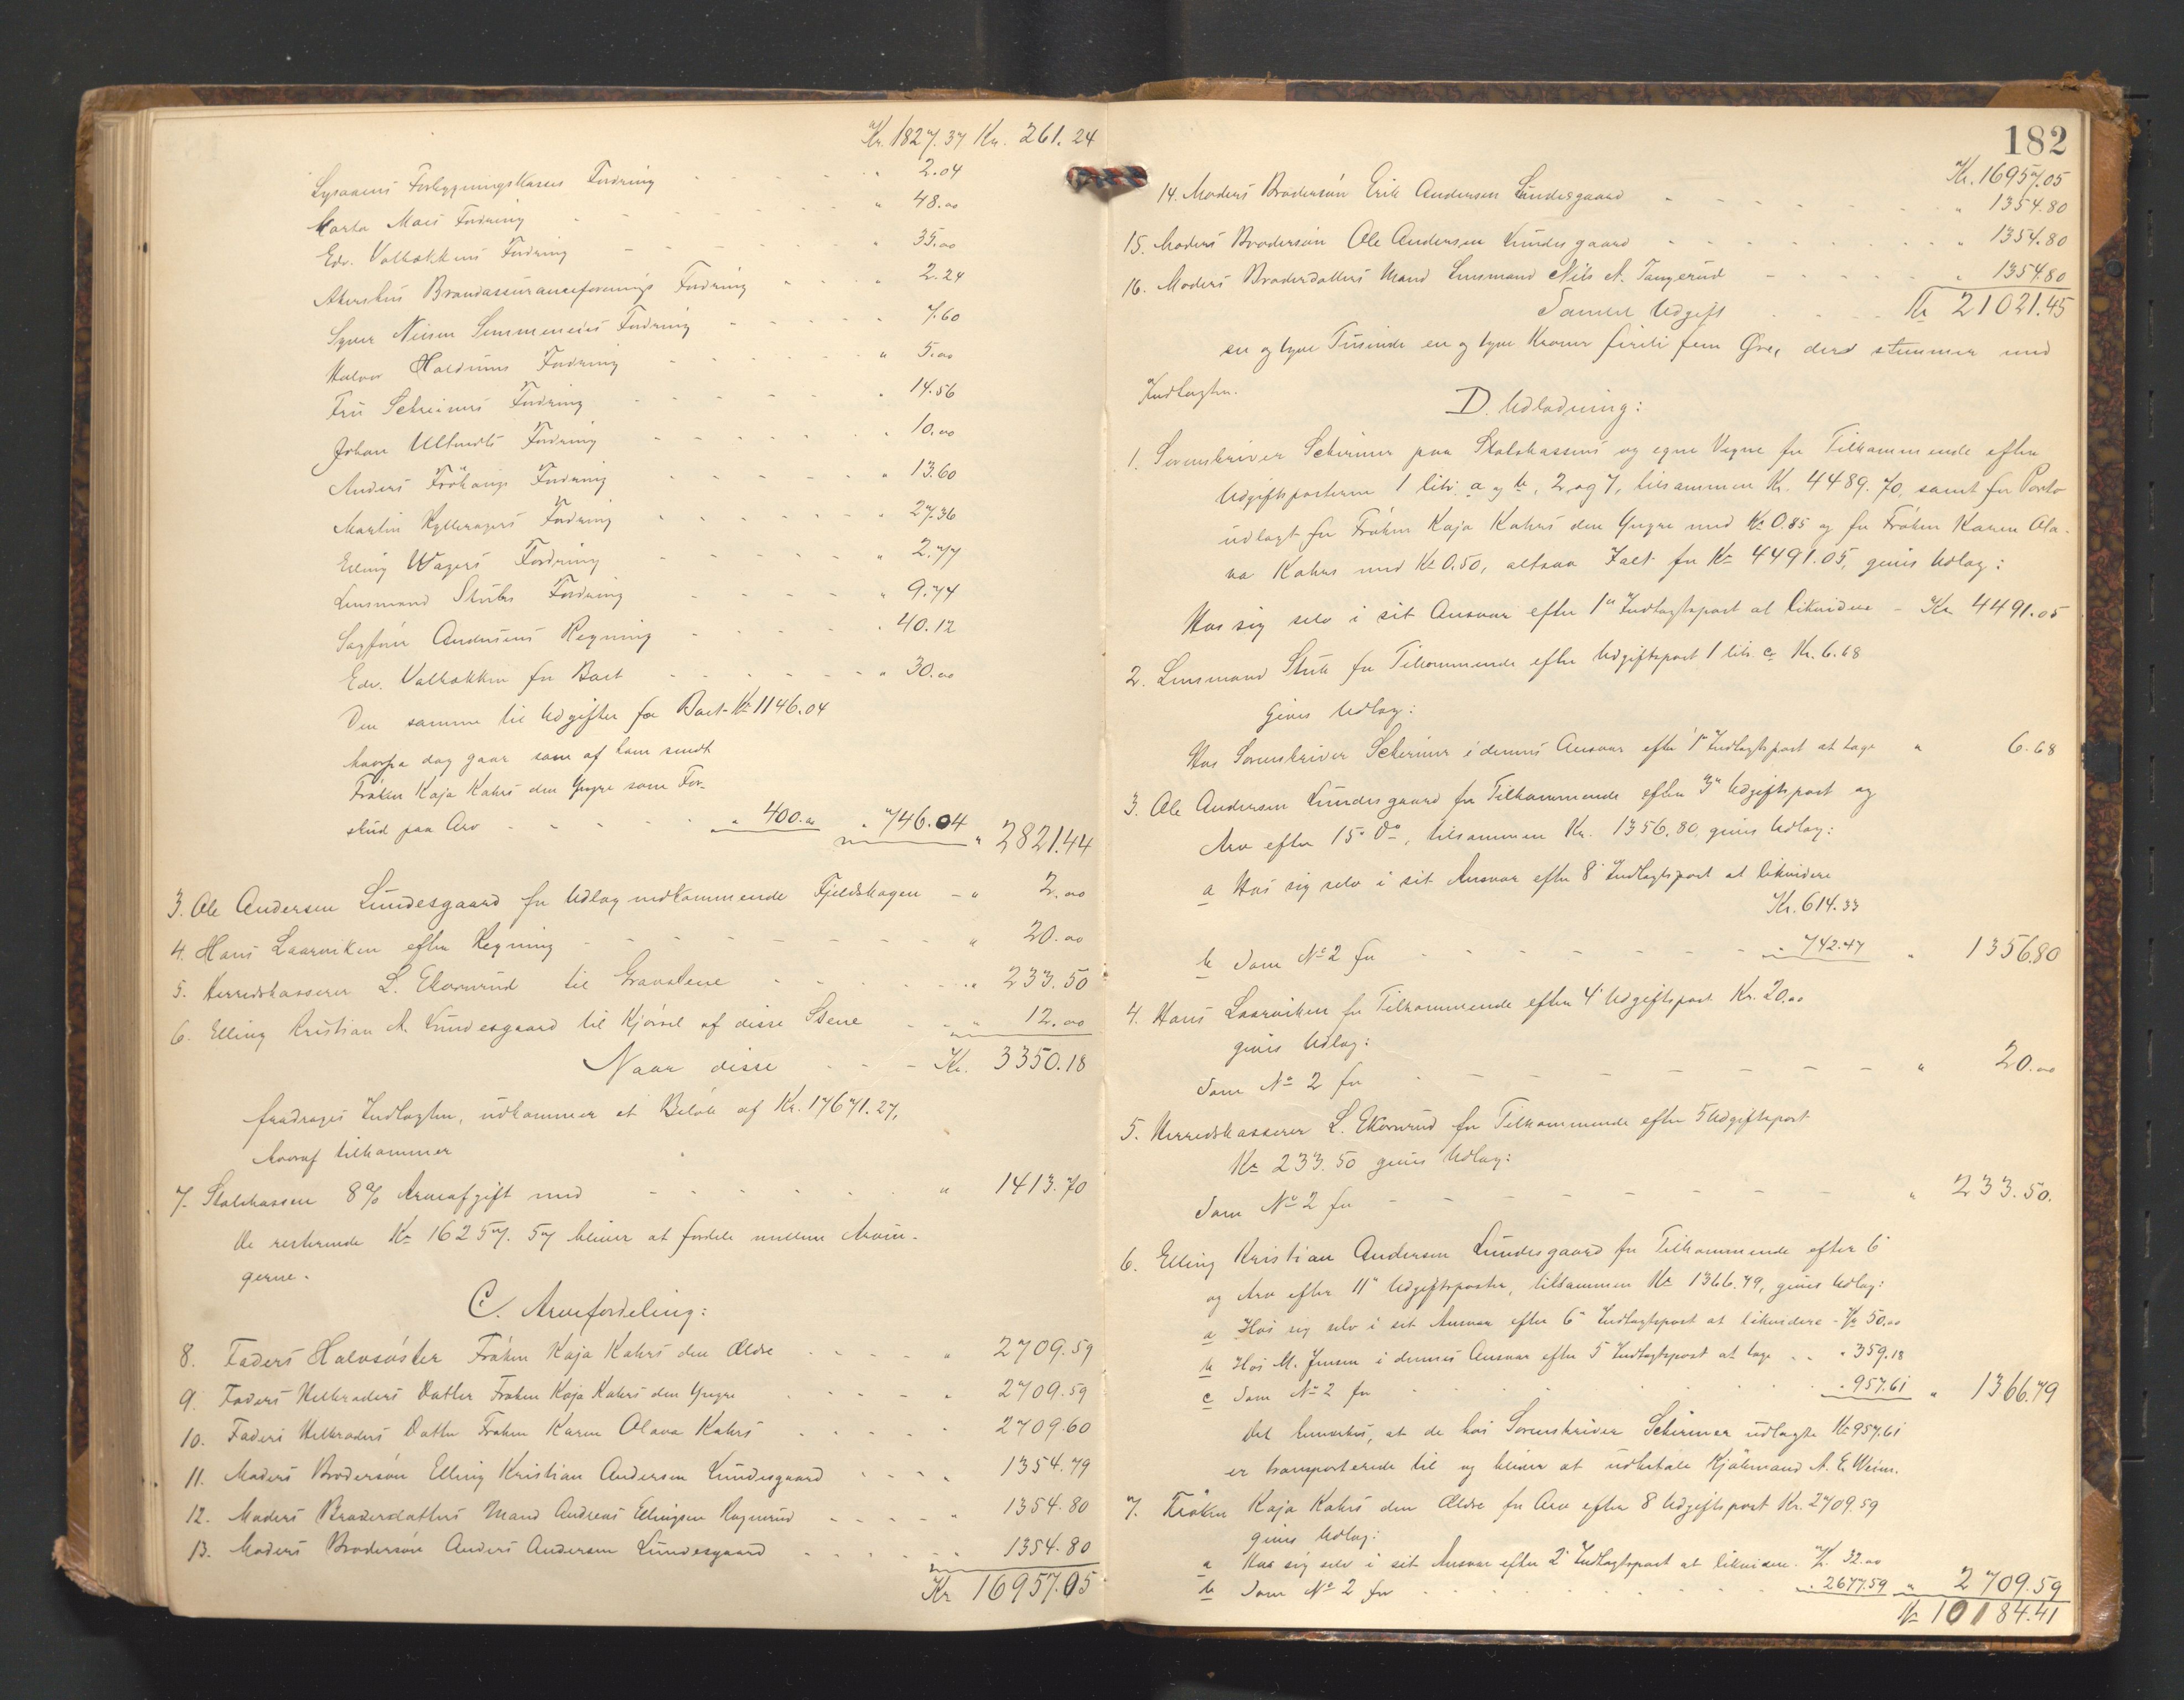 Kr. 1827.37 Kr. 261.24
Lysakens Forbygningskasses Fordring - - - " 2.04
Marta Moes Fordring - - - " 48.00
Edv. Valbækkens Fordring - - - " 35.00
Akershus Brandassuranceforenings Fordring - - " 2.24
Syver Nilsen Fordring - - " 7.60
Halvor Fordring - - - " 5.00
Fru Schreiners Fordring - - - " 14.56
Johan Fordring - - - " 10.00
Anders Fordring - - - " 13.60
Martin Fordring - - - " 27.36
Elling Wagers Fordring - - - " 2.77
Lensmand Stubs Fordring - - - " 9.74
Sagfører Andersens Regning - - - " 40.12
Edv. Valbækken for Boet - - - " 30.00
Den samme til Udgifter for Boet Kr 1146.04
hvorfra dog gaar som af ham sendt
Frøken Kaja Kahrs den Yngre som For-
skud paa Arv - - - " 400.00 " 746.04 " 2821.44
3. Ole Andersen Lundesgaard for Udlæg vedkommende Fjeldskogen - " 2.00
4. Hans Laarviken efter Regning - - - " 20.00
5. Herredskasserer L. Ekornrud til Gravstene - - - " 233.50
6. Elling Kristian A. Lundesgaard til Kjørsel af disse Stene - - " 12.00
Naar disse - - - Kr. 3350.18
fradrages Indtægten, udkommer et Beløb af Kr. 17671.27,
hvoraf tilkommer
7. Statskassen 8% Arveafgift med - - - " 1413.70
De resterende Kr 16257.57 bliver at fordele mellem Arvin-
gerne.
C. Arvefordeling:
8. Faders Halvsøster Frøken Kaja Kahrs den Ældre - - - " 2709.59
9. Faders Helbroders Datter Frøken Kaja Kahrs den Yngre - - - " 2709.59
10. Faders Helbroders Datter Frøken Karen Olava Kahrs - - - " 2709.60
11. Moders Brodersøn Elling Kristian Andersen Lundesgaard - - - " 1354.79
12. Moders Broderdatters Mand Andreas Ellingsen Ragnrud - - - " 1354.80
13. Moders Brodersøn Anders Andersen Lundesgaard - - - " 1354.80
Kr 16957.05
182
Kr. 16957.05
14. Moders Brodersøn Erik Andersen Lundesgaard - - - " 1354.80
15. Moders Brodersøn Ole Andersen Lundesgaard - - - " 1354.80
16. Moders Broderdatters Mand Lensmand Nils A. Tangerud - - - " 1354.80
Samlet Udgift - - - Kr 21021.45
en og tyve Tusinde en og tyve Kroner firti fem Øre, der stemmer med
Indtægten.
D. Udlodning:
1. Sorenskriver Schirmer paa Statskassens og egne Vegne for Tilkommende efter
Udgiftsposterne 1 litr. a og b, 2 og 7, tilsammen Kr. 4489.70, samt for Porto
udlagt for Frøken Kaja Kahrs den Yngre med Kr 0.85 og for Frøken Karen Ola-
va Kahrs med Kr 0.50, altsaa Ialt for Kr 4491.05, gives Udlæg:
Hos sig selv i sit Ansvar efter 1ste Indtægtspost at likvidere - Kr 4491.05
2. Lensmand Stub for Tilkommende efter Udgiftspost 1 litr. c Kr. 6.68
gives Udlæg:
Hos Sorenskriver Schirmer i dennes Ansvar efter 1ste Indtægtspost at tage " 6.68
3. Ole Andersen Lundesgaard for Tilkommende efter 3die Udgiftspost og
Arv efter 15de Do, tilsammen Kr. 1356.80, gives Udlæg:
a Hos sig selv i sit Ansvar efter 8 Indtægtspost at likvidere
Kr. 614.33
b Som No 2 for - - - " 742.47 " 1356.80
4. Hans Laarviken for Tilkommende efter 4 Udgiftspost Kr. 20.00
gives Udlæg:
Som No 2 for - - - " 20.00
5. Herredskasserer L. Ekornrud for Tilkommende efter 5 Udgiftspost
Kr 233.50 gives Udlæg:
Som No 2 for - - - " 233.50.
6. Elling Kristian Andersen Lundesgaard for Tilkommende efter 6
og Arv efter 11te Udgiftsposter, tilsammen Kr 1366.79, gives Udlæg:
a Hos sig selv i sit Ansvar efter 6 Indtægtspost at likvidere - Kr 50.00
b Hos M. Jensen i dennes Ansvar efter 5 Indtægtspost at tage - - " 359.18
c Som No 2 for - - - " 957.61 " 1366.79
Det bemærkes, at de hos Sorenskriver Schirmer udlagte Kr 957.61
er transporterede til og bliver at udbetale Kjøbmand A. E.
7. Frøken Kaja Kahrs den Ældre for Arv efter 8 Udgiftspost Kr. 2709.59
gives Udlæg:
a Hos sig selv i sit Ansvar efter 2 Indtægtspost at likvidere. Kr. 32.00
b Som No 2 for - - - " 2677.59 " 2709.59
Kr 10184.41